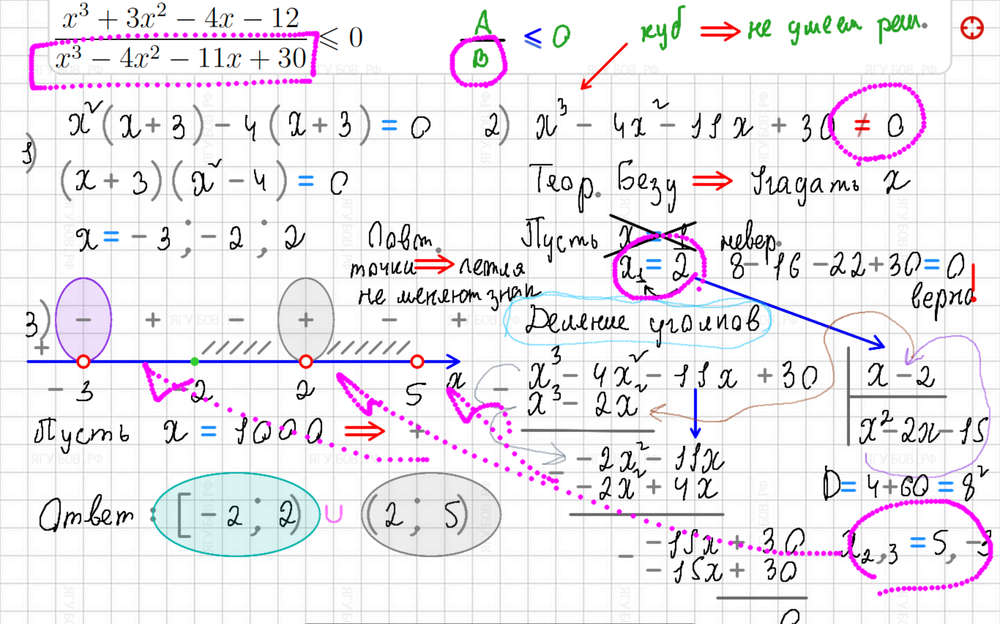 x³ + 3x² − 4x − 12
x³ − 4x² − 11x + 30
⩽ 0
A
B
⩽ 0
куб ⟹ не умеем реш.
1)
x²(x+3) − 4(x+3) = 0
(x+3)(x²−4) = 0
x = −3 ; −2 ; 2
2) x³ − 4x² − 11x + 30 ≠ 0
Теор. Безу ⟹ Угадать x
Пусть x = 1 невер.
x₁ = 2 8−16−22+30=0
верно!
Повт.
точки ⟹ петля
не меняют знак
3)
+ − + − + − +
−3 −2 2 5 x
Пусть x = 1000 ⟹ +
Ответ : [−2 ; 2) ∪ (2 ; 5)
Деление уголком
x³ − 4x² − 11x + 30
x − 2
− x³ − 2x²
x²−2x−15
−2x² − 11x
− −2x² + 4x
−15x + 30
− −15x + 30
0
D = 4+60 = 8²
x₂,₃ = 5, −3